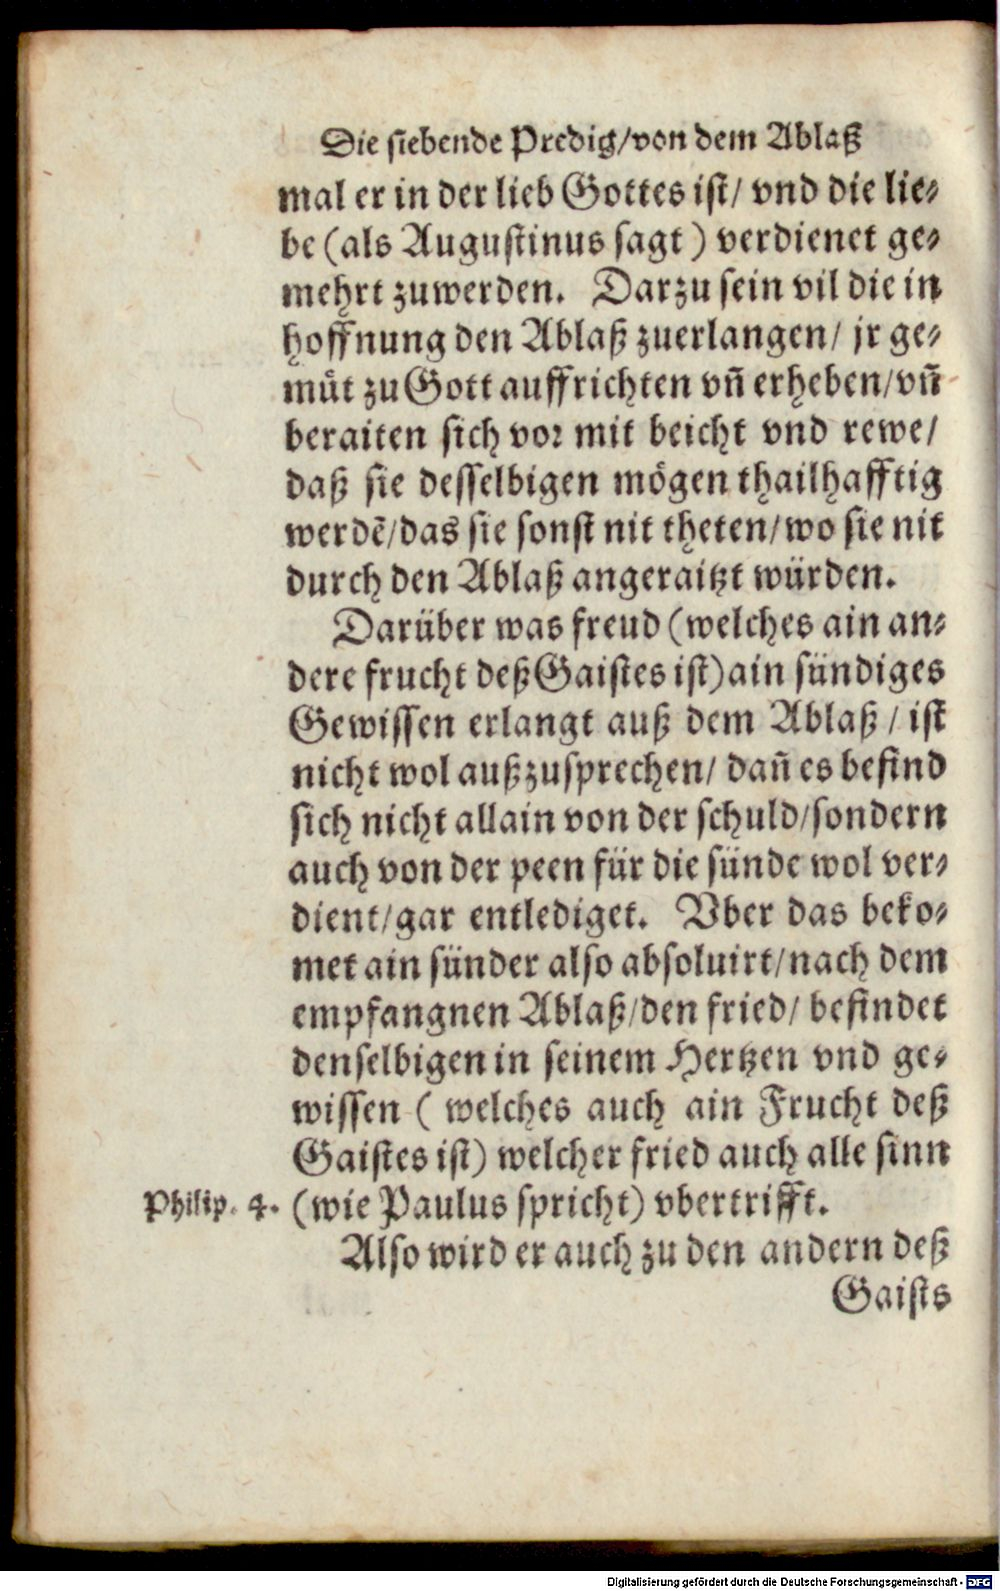 Die siebende Predig/von dem Ablaß
mal er in der lieb Gottes ist/ vnd die lie-
be (als Augustinus sagt) verdienet ge-
mehrt zuwerden. Darzu sein vil die in
hoffnung den Ablaß zuerlangen/ jr ge-
müt zu Gott auffrichten vñ erheben/vñ
beraiten sich vor mit beicht vnd rewe/
daß sie desselbigen mögen thailhafftig
werdẽ/das sie sonst nit theten/wo sie nit
durch den Ablaß angeraitzt würden.
Darüber was freud (welches ain an-
dere frucht deß Gaistes ist) ain sündiges
Gewissen erlangt auß dem Ablaß / ist
nicht wol außzusprechen/ dañ es befind
sich nicht allain von der schuld/sondern
auch von der peen für die sünde wol ver-
dient/gar entlediget. Vber das beko-
met ain sünder also absoluirt/nach dem
empfangnen Ablaß/den fried/ befindet
denselbigen in seinem Hertzen vnd ge-
wissen ( welches auch ain Frucht deß
Gaistes ist) welcher fried auch alle sinn
Philip. 4. (wie Paulus spricht) vbertrifft.
Also wird er auch zu den andern deß
Gaists
Digitalisierung gefördert durch die Deutsche Forschungsgemeinschaft - DFG